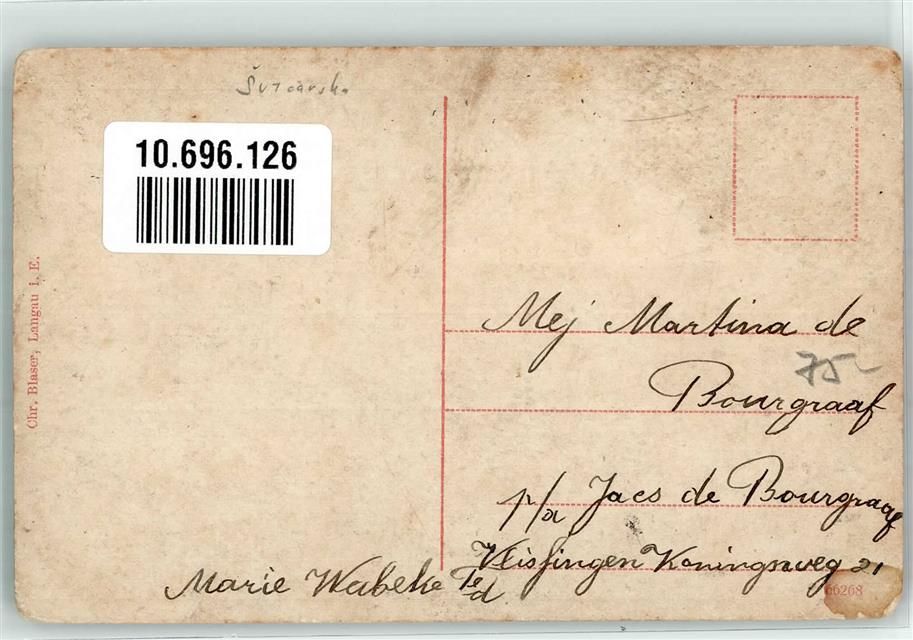 Švicarska
10.696.126
Chr. Blaser, Langau i. E.
Mej Martina de
Bourgraaf
75-
p/a Jacs de Bourgraaf
Vlissingen Koningsweg 21
Marie Wabeke
66268